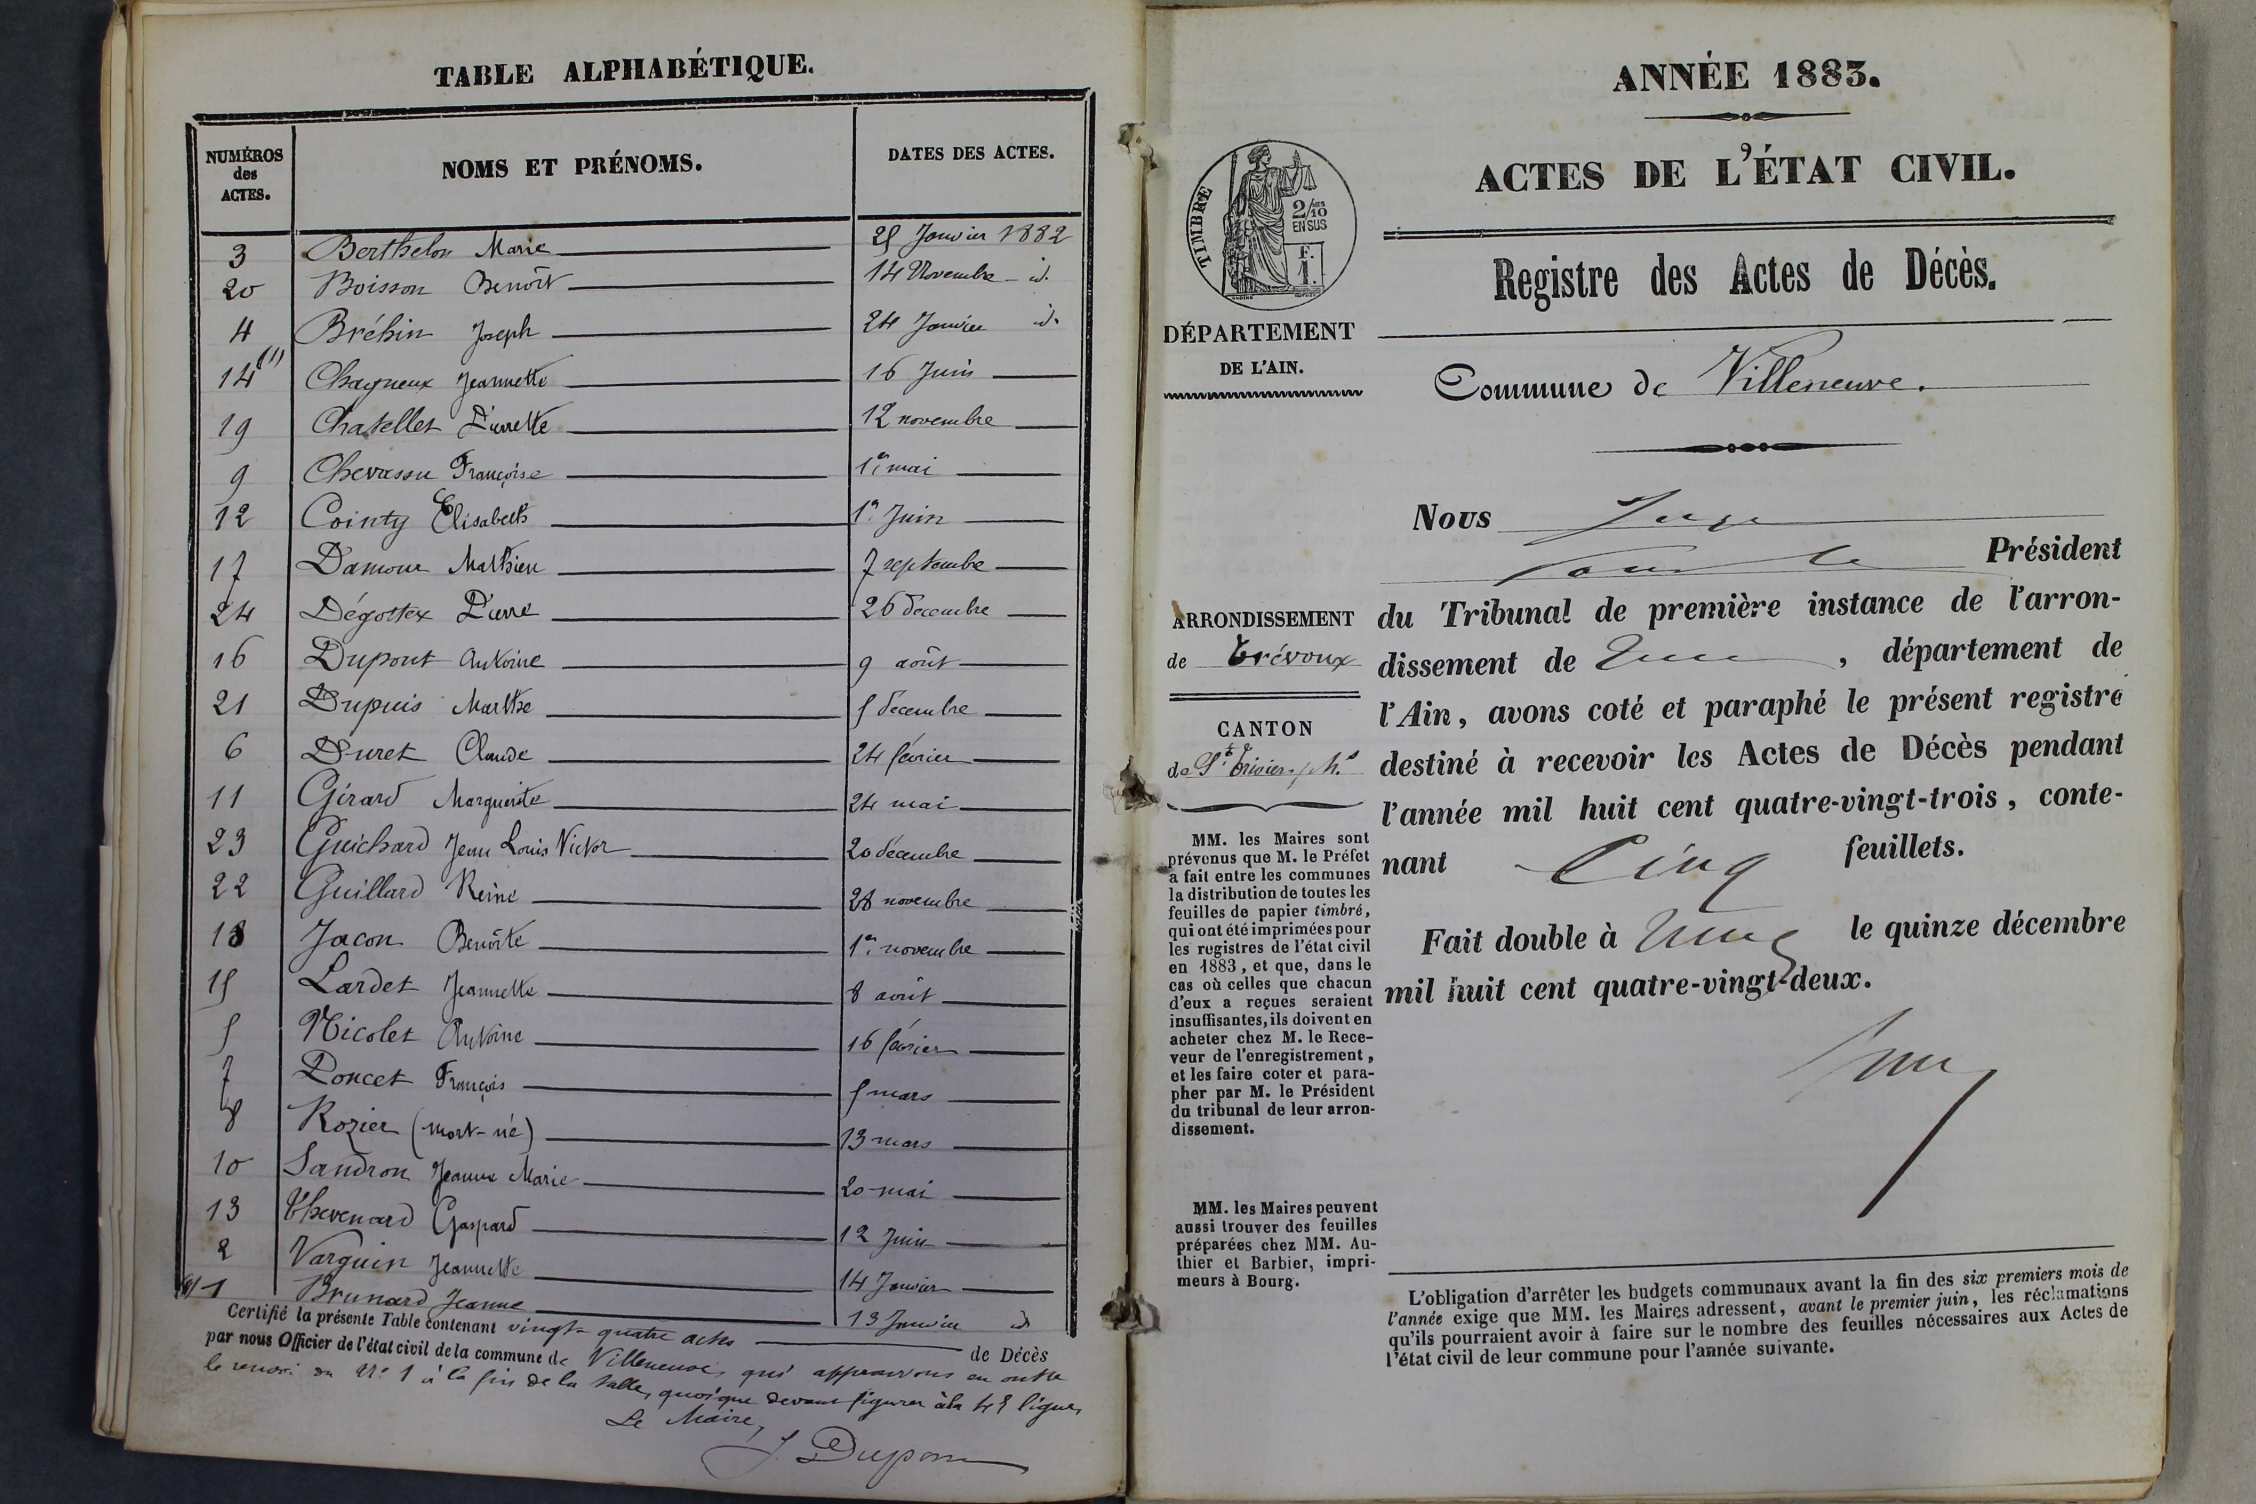 TABLE ALPHABÉTIQUE.
NUMÉROS des ACTES.
NOMS ET PRÉNOMS.
DATES DES ACTES.
3 Berthelon Marie 25 Janvier 1882
20 Boisson Benoît 14 Novembre id.
4 Bréhin Joseph 24 Janvier id.
14 (1) Chagneux Jeannette 16 Juin
19 Chatellet Pierrette 12 novembre
9 Chevassu Françoise 1er mai
12 Cointy Elisabeth 1er Juin
17 Damour Mathieu 7 septembre
24 Dégottex Pierre 26 décembre
16 Dupont Antoine 9 août
21 Dupuis Marthe 5 décembre
6 Duret Claude 24 février
11 Girard Marguerite 24 mai
23 Guichard Jean Louis Victor 20 décembre
22 Guillard Reine 28 novembre
18 Jacon Benoîte 1er novembre
15 Lardet Jeannette 8 août
5 Nicolet Antoine 16 février
7 Poncet François 5 mars
8 Rozier (mort-né) 13 mars
10 Sandron Jeanne Marie 20 mai
13 Thevenard Gaspard 12 Juin
2 Varguin Jeannette 14 Janvier
(1) 1 Brunard Jeanne 13 Janvier id
Certifié la présente Table contenant vingt-quatre actes de Décès
par nous Officier de l'état civil de la commune de Villeneuve, qui approuvons en outre
le renvoi du N° 1 à la fin de la table, quoique devant figurer à la 4e ligne,
Le Maire,
J. Dupon
ANNÉE 1883.
ACTES DE L'ÉTAT CIVIL.
TIMBRE
2/10 EN SUS
F. 1.
Registre des Actes de Décès.
DÉPARTEMENT
DE L'AIN.
Commune de Villeneuve.
ARRONDISSEMENT
de Trévoux
CANTON
de St Trivier s/ Mds
MM. les Maires sont
prévenus que M. le Préfet
a fait entre les communes
la distribution de toutes les
feuilles de papier timbré,
qui ont été imprimées pour
les registres de l'état civil
en 1883, et que, dans le
cas où celles que chacun
d'eux a reçues seraient
insuffisantes, ils doivent en
acheter chez M. le Rece-
veur de l'enregistrement,
et les faire coter et para-
pher par M. le Président
du tribunal de leur arron-
dissement.
MM. les Maires peuvent
aussi trouver des feuilles
préparées chez MM. Au-
thier et Barbier, impri-
meurs à Bourg.
Nous Juge
Président
du Tribunal de première instance de l'arron-
dissement de , département de
l'Ain, avons coté et paraphé le présent registre
destiné à recevoir les Actes de Décès pendant
l'année mil huit cent quatre-vingt-trois, conte-
nant Cinq feuillets.
Fait double à le quinze décembre
mil huit cent quatre-vingt-deux.
L'obligation d'arrêter les budgets communaux avant la fin des six premiers mois de
l'année exige que MM. les Maires adressent, avant le premier juin, les réclamations
qu'ils pourraient avoir à faire sur le nombre des feuilles nécessaires aux Actes de
l'état civil de leur commune pour l'année suivante.